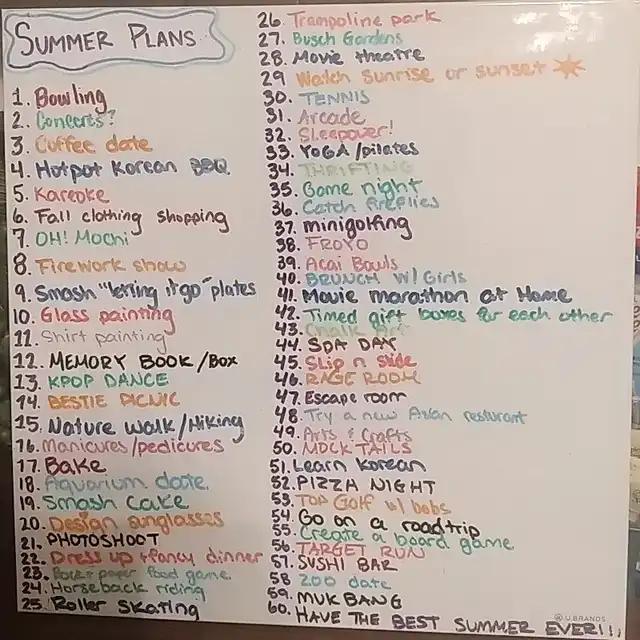 SUMMER PLANS
1. Bowling
2. Concerts?
3. Coffee date
4. Hotpot Korean BBQ
5. Kareoke
6. Fall clothing shopping
7. OH! Mochi
8. Firework show
9. Smash "letting it go" plates
10. Glass painting
11. Shirt painting
12. MEMORY BOOK/Box
13. KPOP DANCE
14. BESTIE PICNIC
15. Nature walk/Hiking
16. Manicures/pedicures
17. Bake
18. Aquarium date
19. Smash Cake
20. Design sunglasses
21. PHOTOSHOOT
22. Dress up + fancy dinner
23. paper food game
24. Horseback riding
25. Roller skating
26. Trampoline park
27. Busch Gardens
28. Movie theatre
29 Watch sunrise or sunset
30. TENNIS
31. Arcade
32. Sleepover!
33. YOGA/pilates
34. THRIFTING
35. Game night
36. Catch fireflies
37. minigolfing
38. FROYO
39. Acai Bowls
40. BRUNCH W/ Girls
41. Movie marathon at Home
42. Timed gift boxes for each other
43. Chalk Art
44. SPA DAY
45. Slip n slide
46. RAGE ROOM
47. Escape room
48. Try a new Asian resturant
49. Arts & Crafts
50. MOCKTAILS
51. Learn Korean
52. PIZZA NIGHT
53. TOP Golf w/ bobs
54. Go on a roadtrip
55. Create a board game
56. TARGET RUN
57. SUSHI BAR
58 ZOO date
59. MUKBANG
60. HAVE THE BEST SUMMER EVER!!!
U.BRANDS